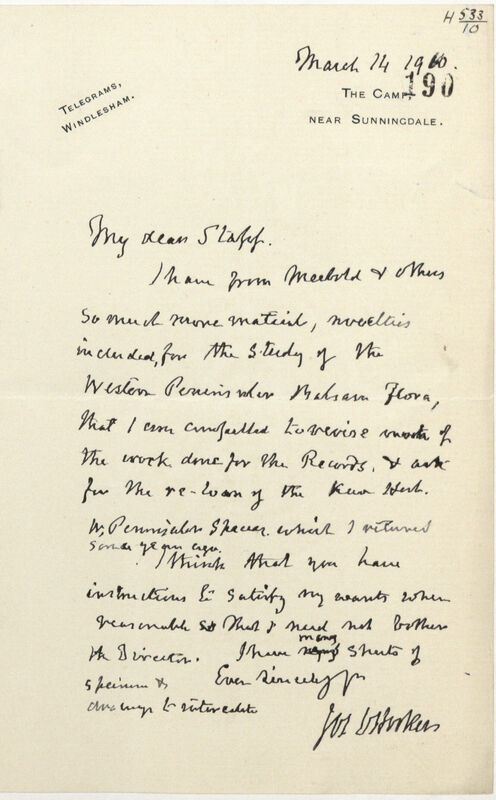 H 533
10
March 14 1910.
190
TELEGRAMS,
WINDLESHAM.
THE CAMP,
NEAR SUNNINGDALE.
My dear Stapf.
I have from Meebold & others
so much more material, novelties
included, for the study of the
Western Peninsular Balsam Flora,
that I am compelled to revise much of
the work done for the Records, & ask
for the re-loan of the Kew Herb.
W. Peninsular species which I returned
some years ago.
I think that you have
instructions to satisfy my wants when
reasonable so that I need not bother
the Director. I have many sheets of
specimens &
drawings to intercalate
Ever sincerely yrs
Jos D Hooker